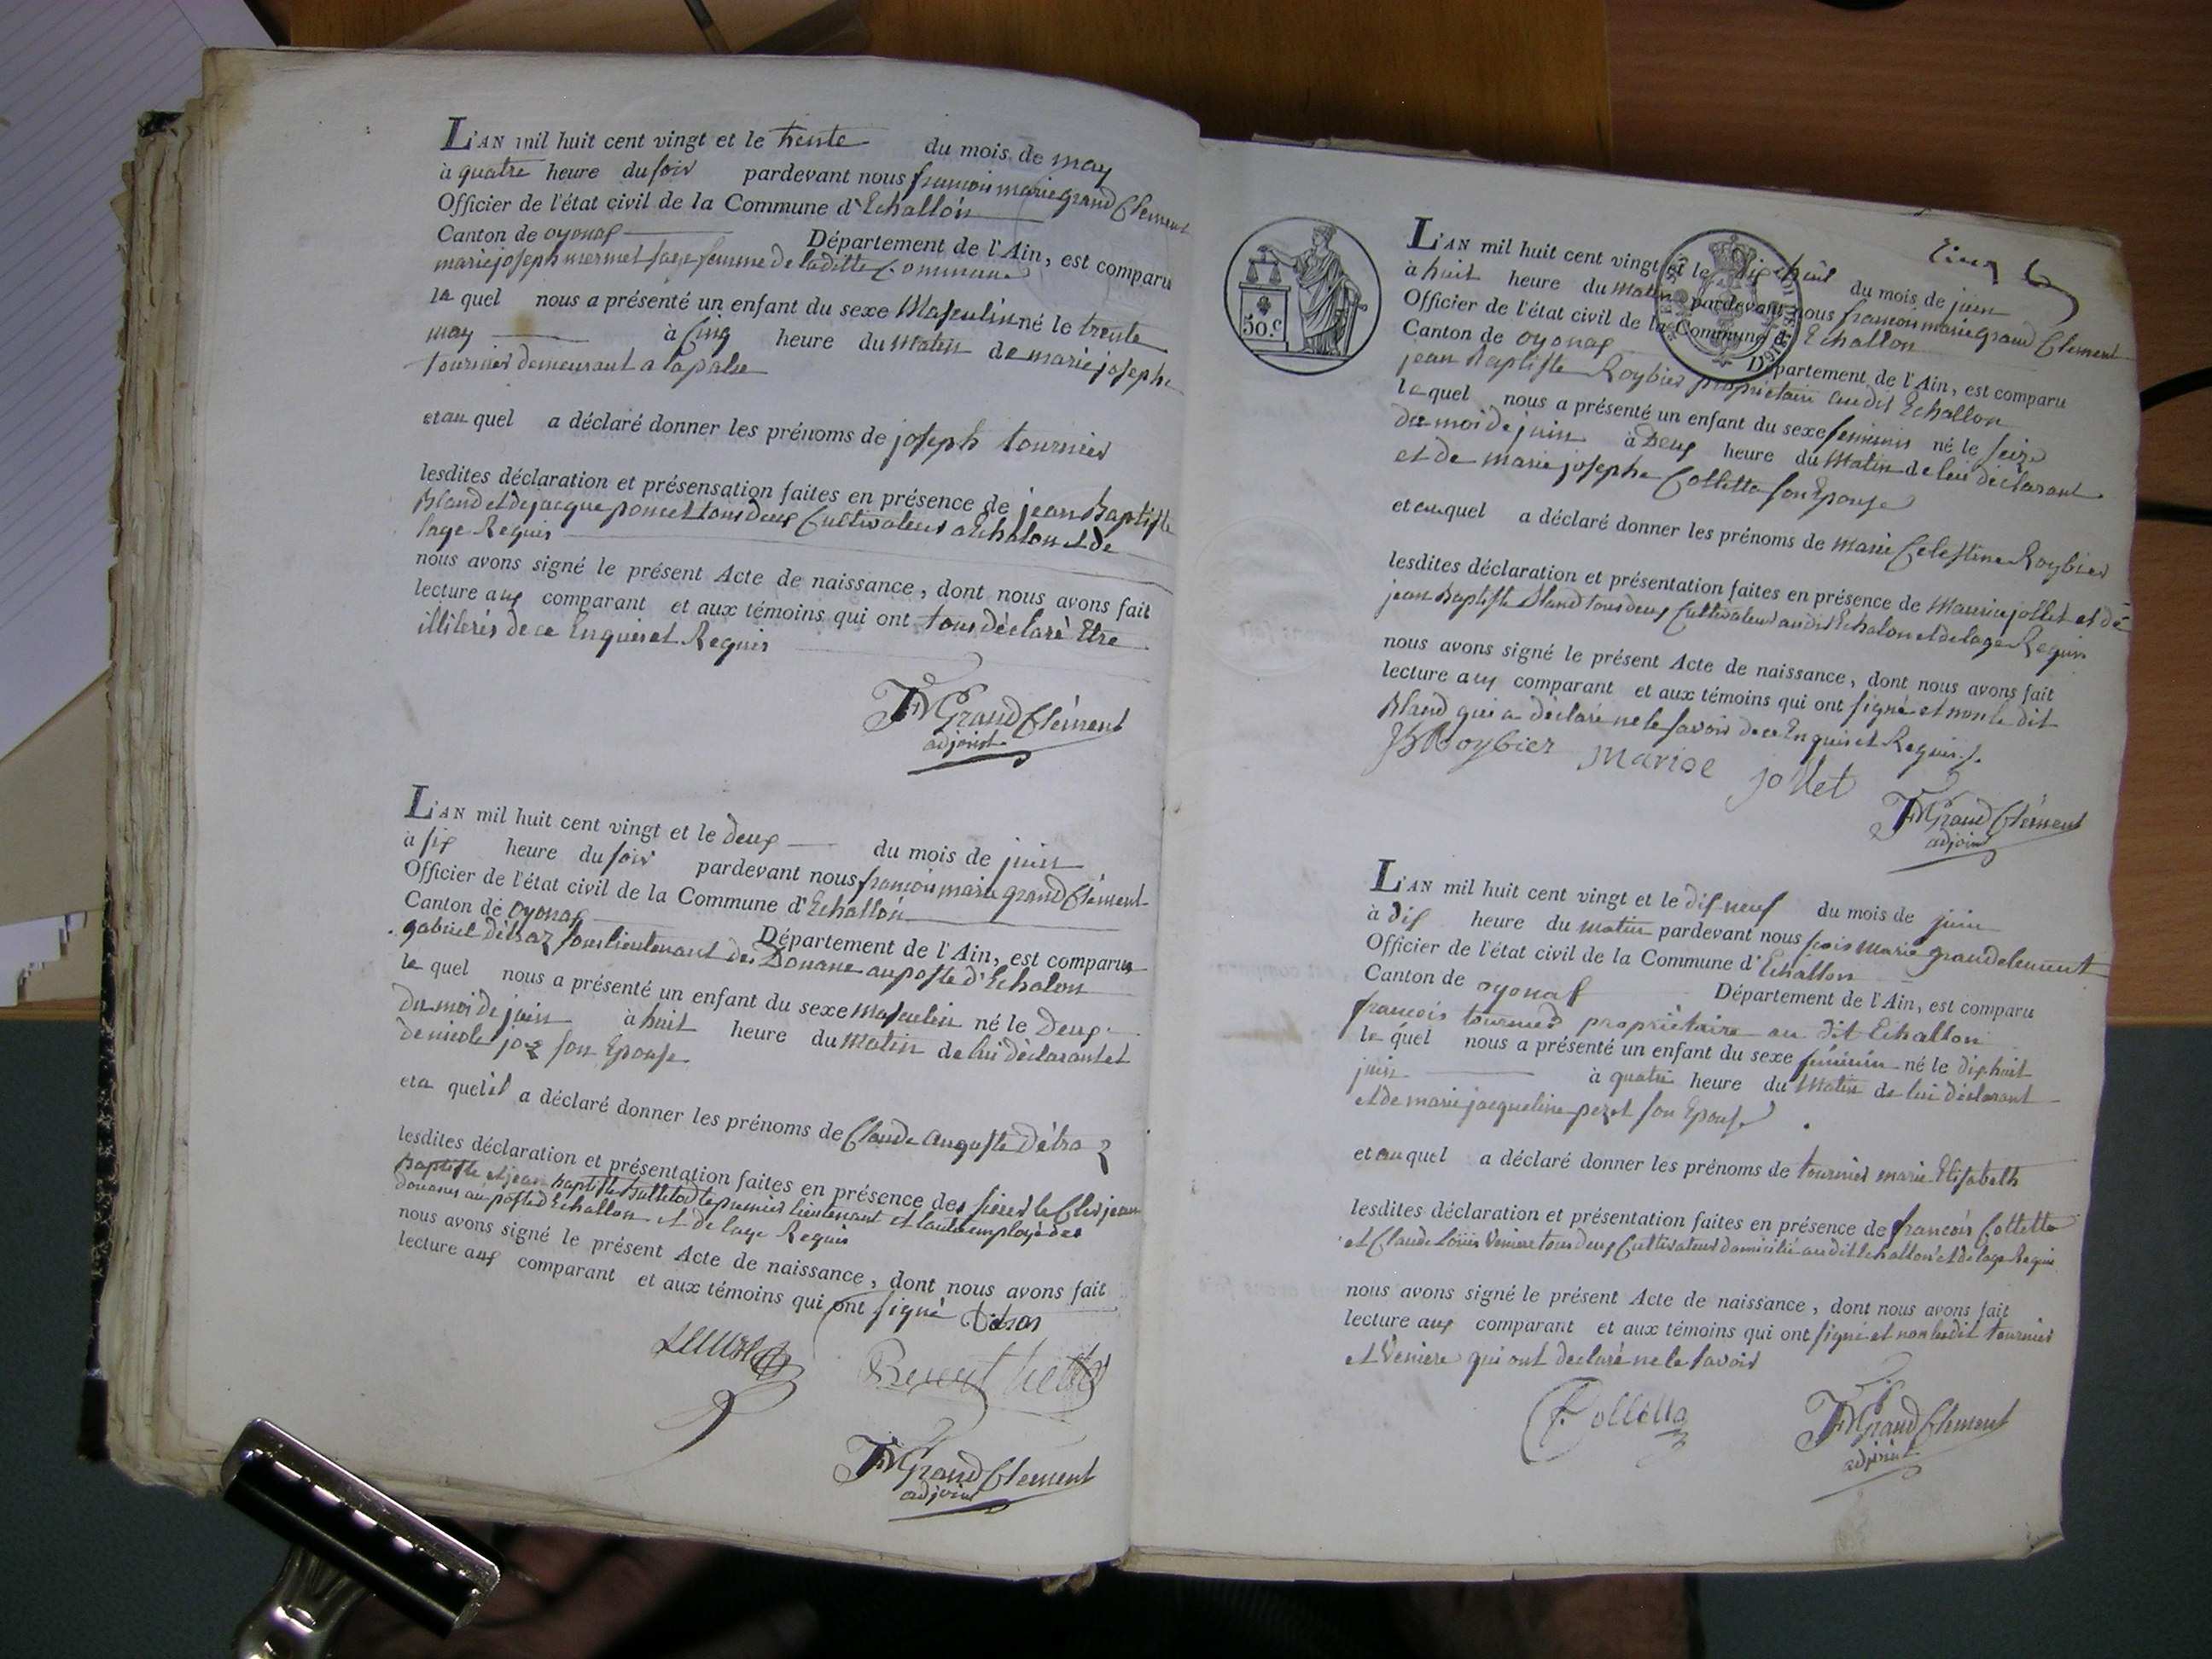 L'AN mil huit cent vingt et le trente du mois de may
à quatre heure du soir pardevant nous francois marie grand Clement
Officier de l'état civil de la Commune d'Echallon
Canton de oyonax Département de l'Ain, est comparu
marie joseph mermet sage femme de laditte Commune
la quel nous a présenté un enfant du sexe Masculin né le trente
may à Cinq heure du Matin de marie josephe
tournier demeurant a lapalse
et au quel a déclaré donner les prénoms de joseph tournier
lesdites déclaration et présensation faites en présence de jean Baptiste
Bland et de jacque poncet tous deux Cultivateurs a Echalon et de
l'age Requis
nous avons signé le présent Acte de naissance, dont nous avons fait
lecture aux comparant et aux témoins qui ont tous déclaré Etre
illiterés de ce Enquis et Requis
FM Grand Clément
adjoint
L'AN mil huit cent vingt et le deux du mois de juin
à six heure du soir pardevant nous francois marie grand Clément
Officier de l'état civil de la Commune d'Echallon
Canton de oyonax Département de l'Ain, est comparu
gabriel détraz sous lieutenant des Douane au poste d'Echalon
le quel nous a présenté un enfant du sexe masculin né le Deux
du moi de juin à huit heure du Matin de lui déclarant et
de nicole joz son Epouse
et a quel il a déclaré donner les prénoms de Claude Auguste Détraz
lesdites déclaration et présentation faites en présence des sieurs le Cler jean
Baptiste et jean Baptiste le premier lieutenant et l'autre employé des
douanes au poste d'Echallon et de l'age Requis
nous avons signé le présent Acte de naissance, dont nous avons fait
lecture aux comparant et aux témoins qui ont signé Détras
FM Grand Clément
adjoint
50.C
L'AN mil huit cent vingt et le dix huit du mois de juin
à huit heure du Matin pardevant nous francois marie grand Clement
Officier de l'état civil de la Commune d'Echallon
Canton de oyonax Département de l'Ain, est comparu
jean Baptiste Roybier propriétaire audit Echallon
le quel nous a présenté un enfant du sexe feminin né le seize
du moi de juin à Deux heure du Matin de lui déclarant
et de marie josephe Colletta son Epouse
et au quel a déclaré donner les prénoms de marie Celestine Roybier
lesdites déclaration et présentation faites en présence de Maurice jollet et de
jean Baptiste Bland tous deux Cultivateurs audit Echalon et de l'age Requis
nous avons signé le présent Acte de naissance, dont nous avons fait
lecture aux comparant et aux témoins qui ont signé et non le dit
Bland qui a déclaré ne le savoir de ce Enquis et Requis
JB Roybier Marise jollet
FM Grand Clément
adjoint
L'AN mil huit cent vingt et le dix neuf du mois de juin
à dix heure du matin pardevant nous fcois Marie grandclement
Officier de l'état civil de la Commune d'Echallon
Canton de oyonax Département de l'Ain, est comparu
francois tournier propriétaire au dit Echallon
le quel nous a présenté un enfant du sexe féminin né le dix huit
juin à quatre heure du Matin de lui déclarant
et de marie jacqueline pezet son Epouse
et au quel a déclaré donner les prénoms de tournier marie Elisabeth
lesdites déclaration et présentation faites en présence de francois Colletta
et Claude Louis Veniere tous deux Cultivateurs domicilié audit Echallon et de l'age Requis
nous avons signé le présent Acte de naissance, dont nous avons fait
lecture aux comparant et aux témoins qui ont signé et non lesdit tournier
et Veniere qui ont declaré ne le savoir
F. Colletta
FM Grand Clement
adjoint